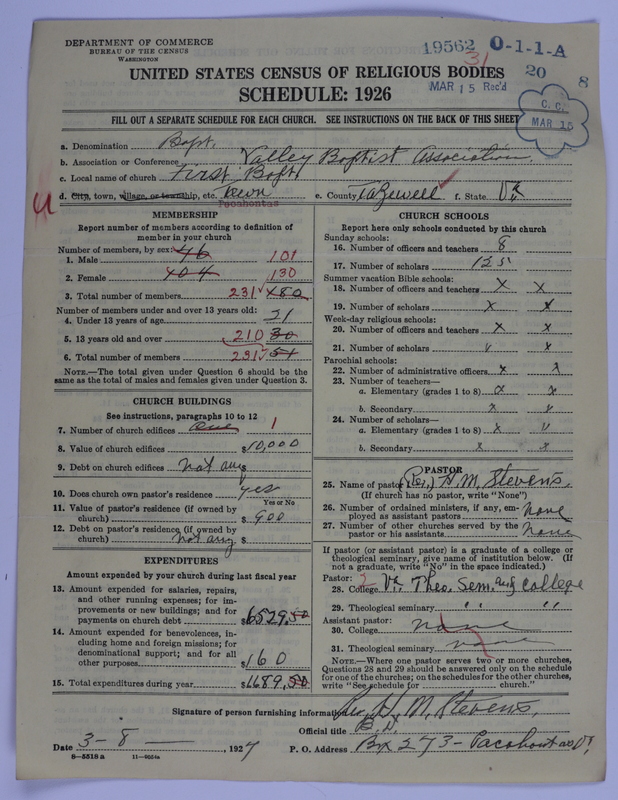 DEPARTMENT OF COMMERCE
BUREAU OF THE CENSUS
WASHINGTON
19562 0-1-1-A
31
20 8
MAR 15 Rec'd
C. C.
MAR 15
UNITED STATES CENSUS OF RELIGIOUS BODIES
SCHEDULE: 1926
FILL OUT A SEPARATE SCHEDULE FOR EACH CHURCH. SEE INSTRUCTIONS ON THE BACK OF THIS SHEET
a. Denomination Bapt.
b. Association or Conference Valley Baptist Association.
c. Local name of church First Bapt
d. City, town, village, or township, etc. Town e. County Tazewell f. State Va.
Pocahontas
MEMBERSHIP
Report number of members according to definition of
member in your church
Number of members, by sex:
1. Male 46 101
2. Female 404 130
3. Total number of members 231 480
Number of members under and over 13 years old:
4. Under 13 years of age 21
5. 13 years old and over 210 30
6. Total number of members 231 51
NOTE.—The total given under Question 6 should be
the same as the total of males and females given under Question 3.
CHURCH BUILDINGS
See instructions, paragraphs 10 to 12
7. Number of church edifices one 1
8. Value of church edifices $10,000
9. Debt on church edifices not any $
10. Does church own pastor's residence yes
Yes or No
11. Value of pastor's residence (if owned by
church) $900
12. Debt on pastor's residence (if owned by
church) not any $
EXPENDITURES
Amount expended by your church during last fiscal year
13. Amount expended for salaries, repairs,
and other running expenses; for im-
provements or new buildings; and for
payments on church debt $6529.50
14. Amount expended for benevolences, in-
cluding home and foreign missions; for
denominational support; and for all
other purposes $160
15. Total expenditures during year $6689.50
CHURCH SCHOOLS
Report here only schools conducted by this church
Sunday schools:
16. Number of officers and teachers 8
17. Number of scholars 125
Summer vacation Bible schools:
18. Number of officers and teachers x x
19. Number of scholars x x
Week-day religious schools:
20. Number of officers and teachers x x
21. Number of scholars v x
Parochial schools:
22. Number of administrative officers x x
23. Number of teachers—
a. Elementary (grades 1 to 8) x x
b. Secondary x x
24. Number of scholars—
a. Elementary (grades 1 to 8) x v
b. Secondary x x
PASTOR
25. Name of pastor (Rev.) H. M. Stevens.
(If church has no pastor, write "None")
26. Number of ordained ministers, if any, em-
ployed as assistant pastors none
27. Number of other churches served by the
pastor or his assistants none
If pastor (or assistant pastor) is a graduate of a college or
theological seminary, give name of institution below. (If
not a graduate, write "No" in the space indicated.)
Pastor: 2
28. College Va. Theo. Sem. and College
29. Theological seminary " " " "
Assistant pastor:
30. College none
31. Theological seminary none
NOTE.—Where one pastor serves two or more churches,
Questions 28 and 29 should be answered only on the schedule
for one of the churches; on the schedules for the other churches,
write "See schedule for church."
Signature of person furnishing information Rev. H. M. Stevens,
Official title B.D.
Date 3-8 , 1927 P. O. Address Bx 273- Pocahontas Va.
8—5518 a 11—9654a